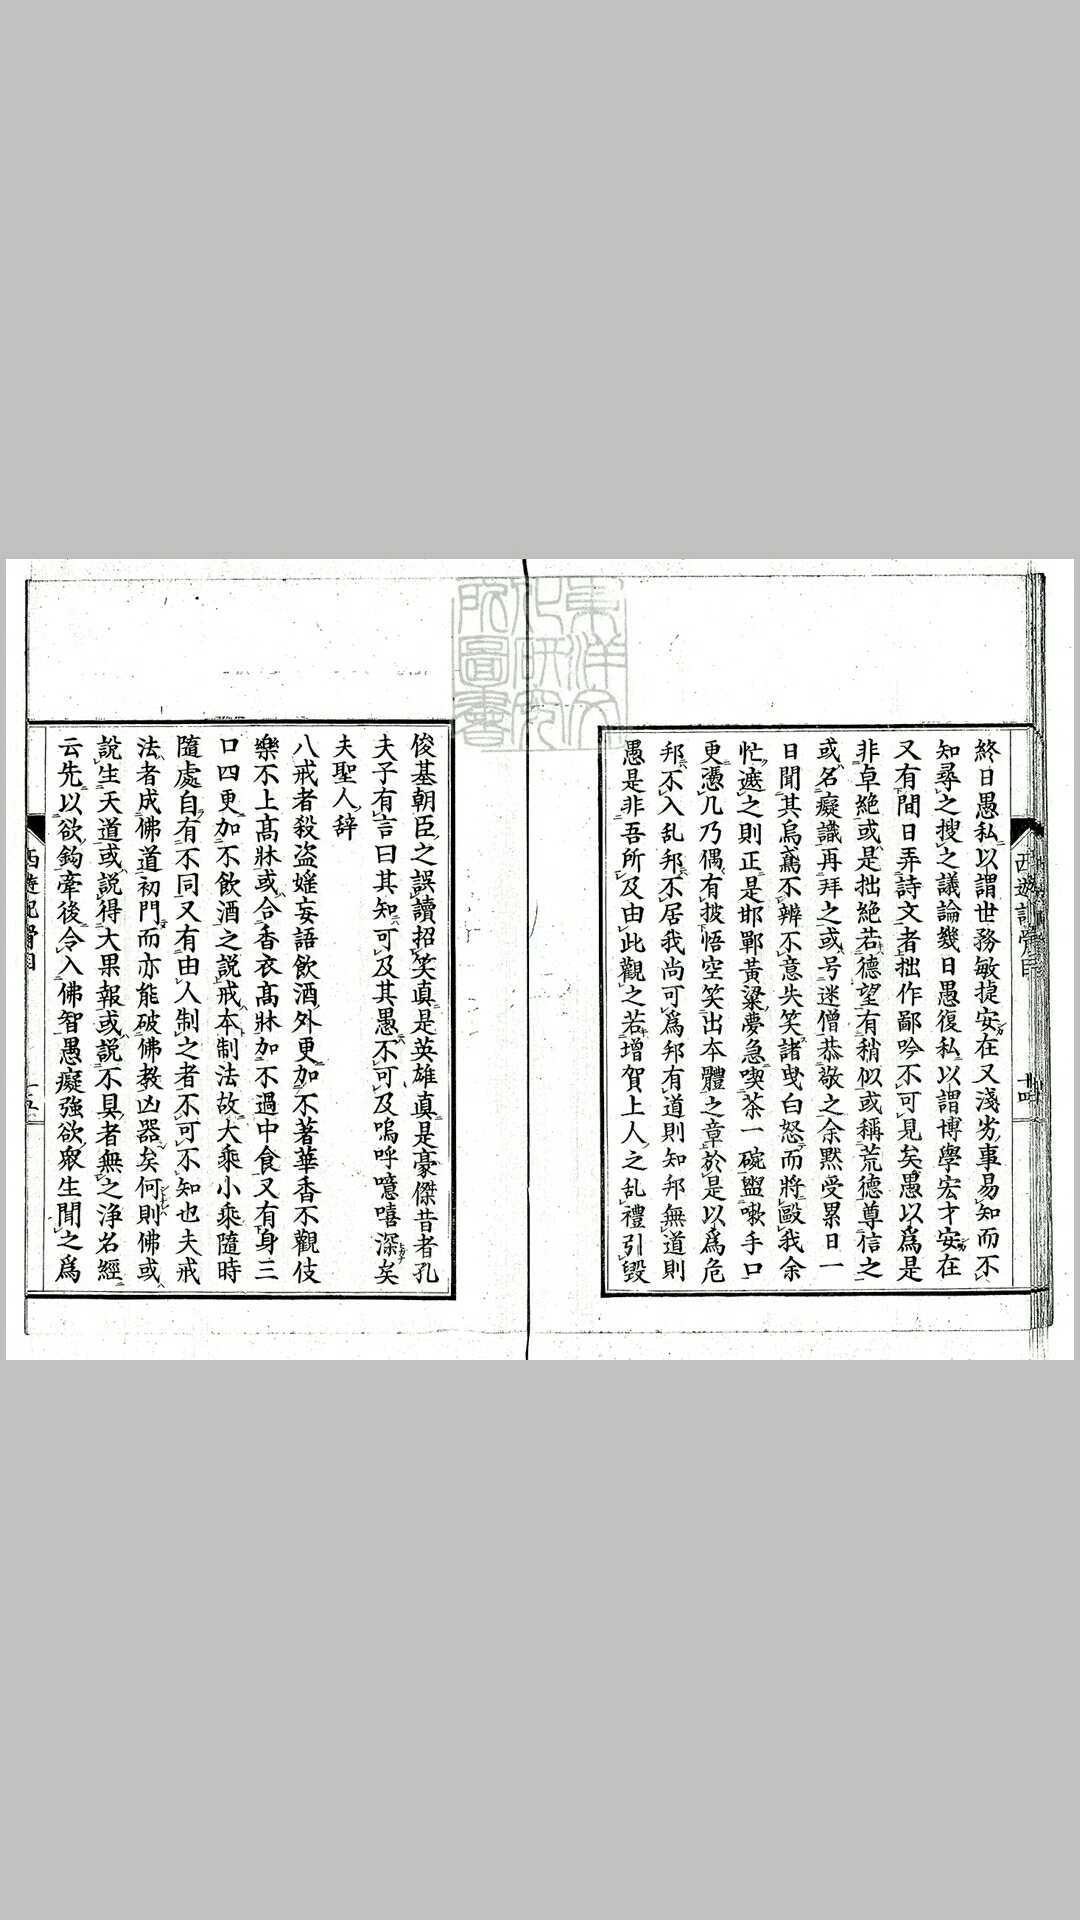 終日愚私以謂世務敏捷安在又淺劣事易知而不
知尋之搜之議論幾日愚復私以謂博學宏才安在
又有間日弄詩文者拙作鄙吟不可見矣愚以爲是
非卓絶或是拙絶若德望有稍似或稱荒德尊信之
或名癡識再拜之或号迷僧恭敬之余黙受累日一
日聞其烏鳶不辨不意失笑諸曳白怒而將毆我余
忙遮之則正是邯鄲黃粱夢急喫茶一碗盥嗽手口
更憑几乃偶有披悟空笑出本體之章於是以爲危
邦不入乱邦不居我尚可爲邦有道則知邦無道則
愚是非吾所及由此觀之若增賀上人之乱禮引毀
俊基朝臣之誤讀招笑真是英雄真是豪傑昔者孔
夫子有言曰其知可及其愚不可及嗚呼噫嘻深矣
夫聖人辞
八戒者殺盗婬妄語飲酒外更加不著華香不觀伎
樂不上高牀或合香衣高牀加不過中食又有身三
口四更加不飲酒之説戒本制法故大乘小乘隨時
隨處自有不同又有由人制之者不可不知也夫戒
法者成佛道初門而亦能破佛教凶器矣何則佛或
說生天道或説得大果報或説不具者無之浄名經
云先以欲鈎牽後令入佛智愚癡強欲衆生聞之爲
西遊記骨目
廿四
東洋文化研究所圖書